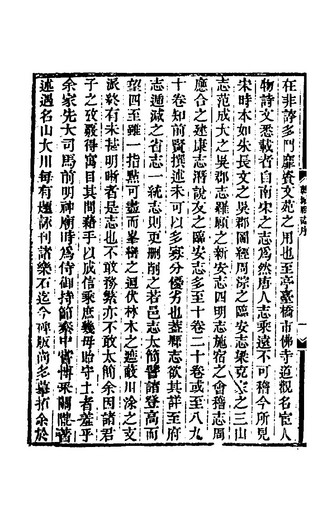 在非薄多鬥靡資文苑之用也至亭臺橋市佛寺道觀名宦人
物詩文悉載者自南宋之志為然唐人志乘遠不可稽今所見
宋時本如朱長文之吳郡圖經周淙之臨安志梁克家之三山
志范成大之吳郡志羅願之新安志四明志施宿之會稽志周
應合之建康志潛說友之臨安志多至十卷二十卷或至八九
十卷知前賢撰述未可以多寡分優劣也蓋郡志欲其詳至府
志遞減之省志一統志則更刪削之若邑志太簡譬諸登高而
望四至雖一指點可盡而峯樹之迴伏林木之遮蔽川涂之支
派終有未甚明晰者是志也不敢務繁亦不敢太簡余因諸君
子之致發得寓目其間藉手以成信乘庶幾毋貽守土者羞乎
余家先大司馬前明神廟時為侍御持節秦中嘗博采關隴舊
述過名山大川每有題詠刊諸樂石迄今碑版尚多摹拓余於